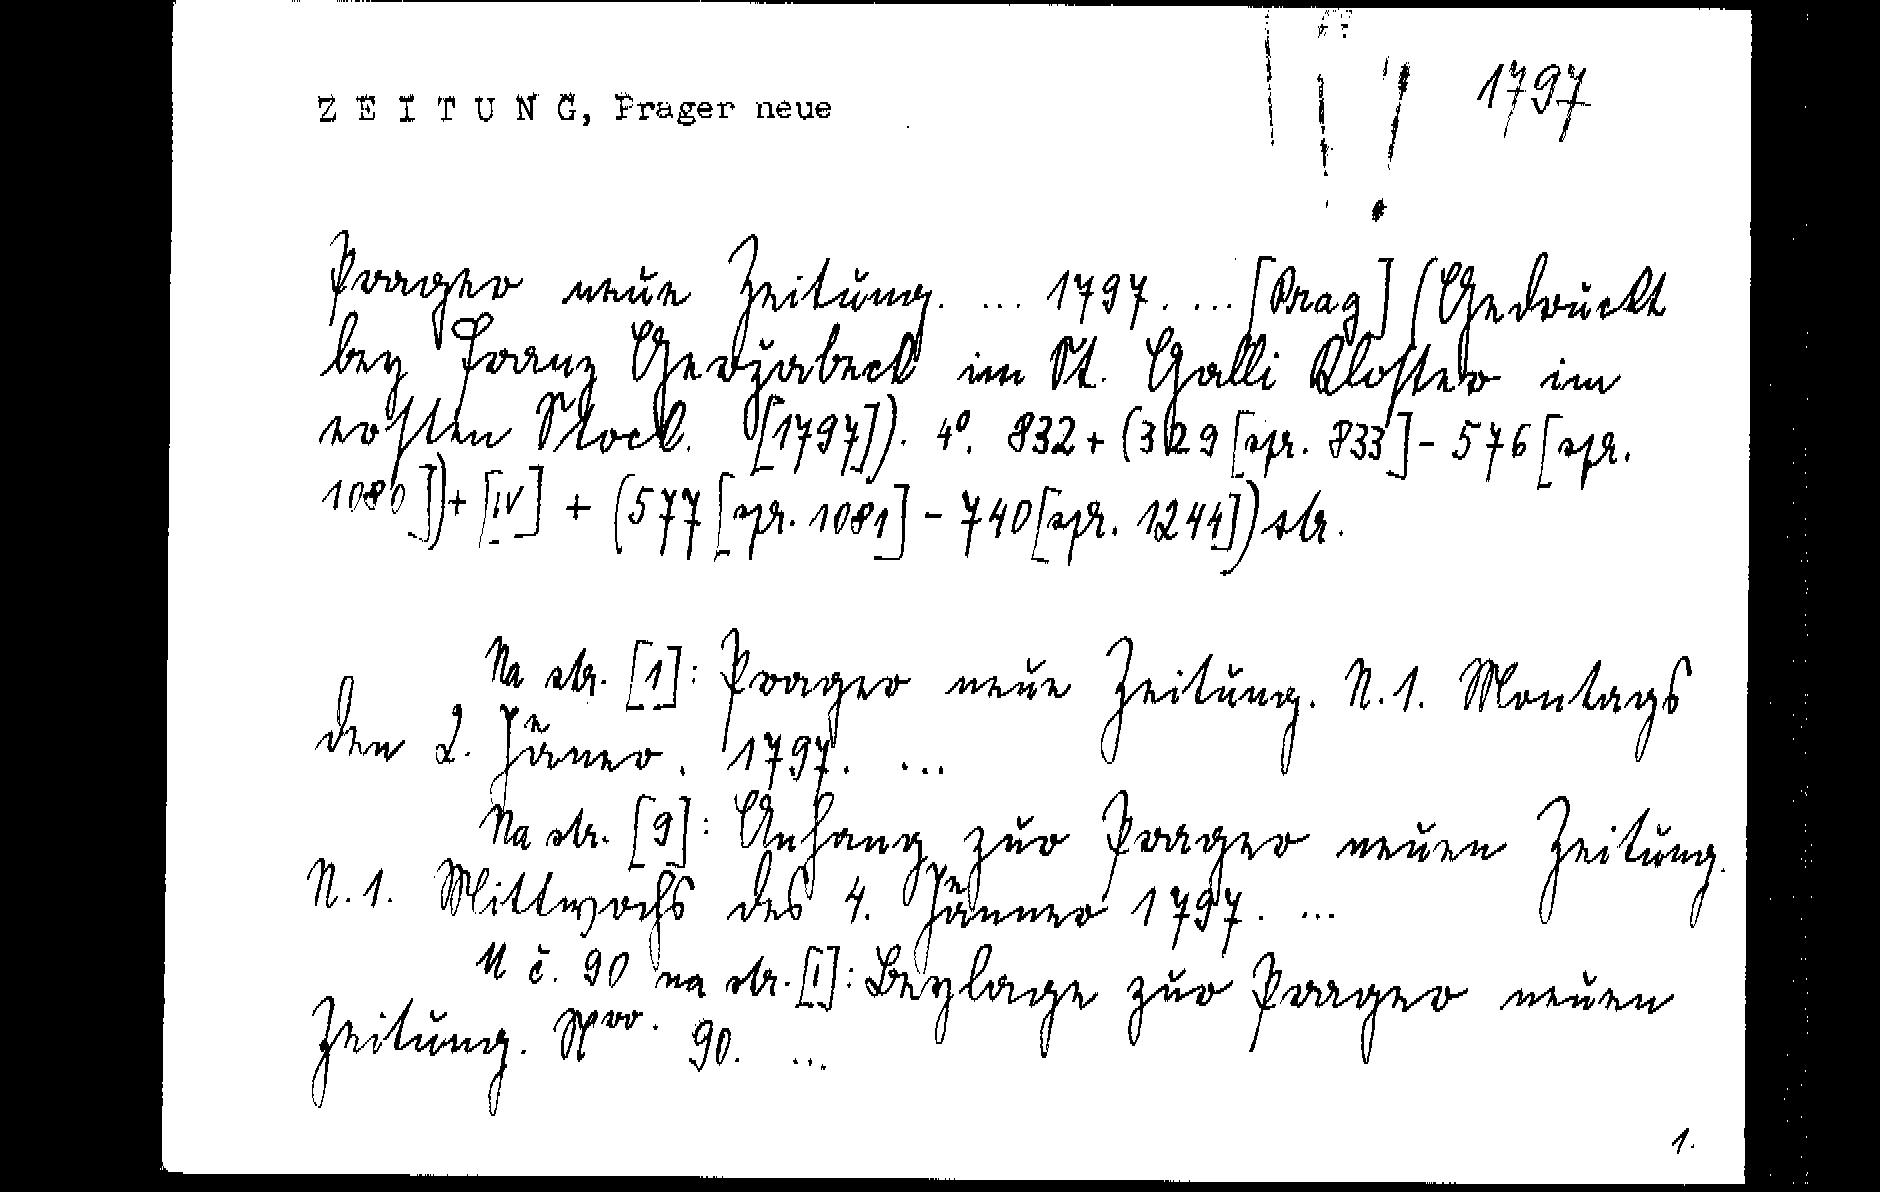 ZEITUNG, Prager neue
1797
Prager neue Zeitung. ... 1797. ... [Prag] (Gedruckt
bey Franz Gerzabeck im St. Galli Kloster im
ersten Stock. [1797]). 4°. 832 + (329 [spr. 833] - 576 [spr.
1080]) + [IV] + (577 [spr. 1081] - 740 [spr. 1244]) str.
Na str. [1]: Prager neue Zeitung. N. 1. Montags
den 2. Jäner. 1797. ...
Na str. [9]: Anhang zur Prager neuen Zeitung.
N. 1. Mittwochs des 4. Jänner 1797. ...
U č. 90 na str. [I]: Beylage zur Prager neuen
Zeitung. Nro. 90. ...
1.